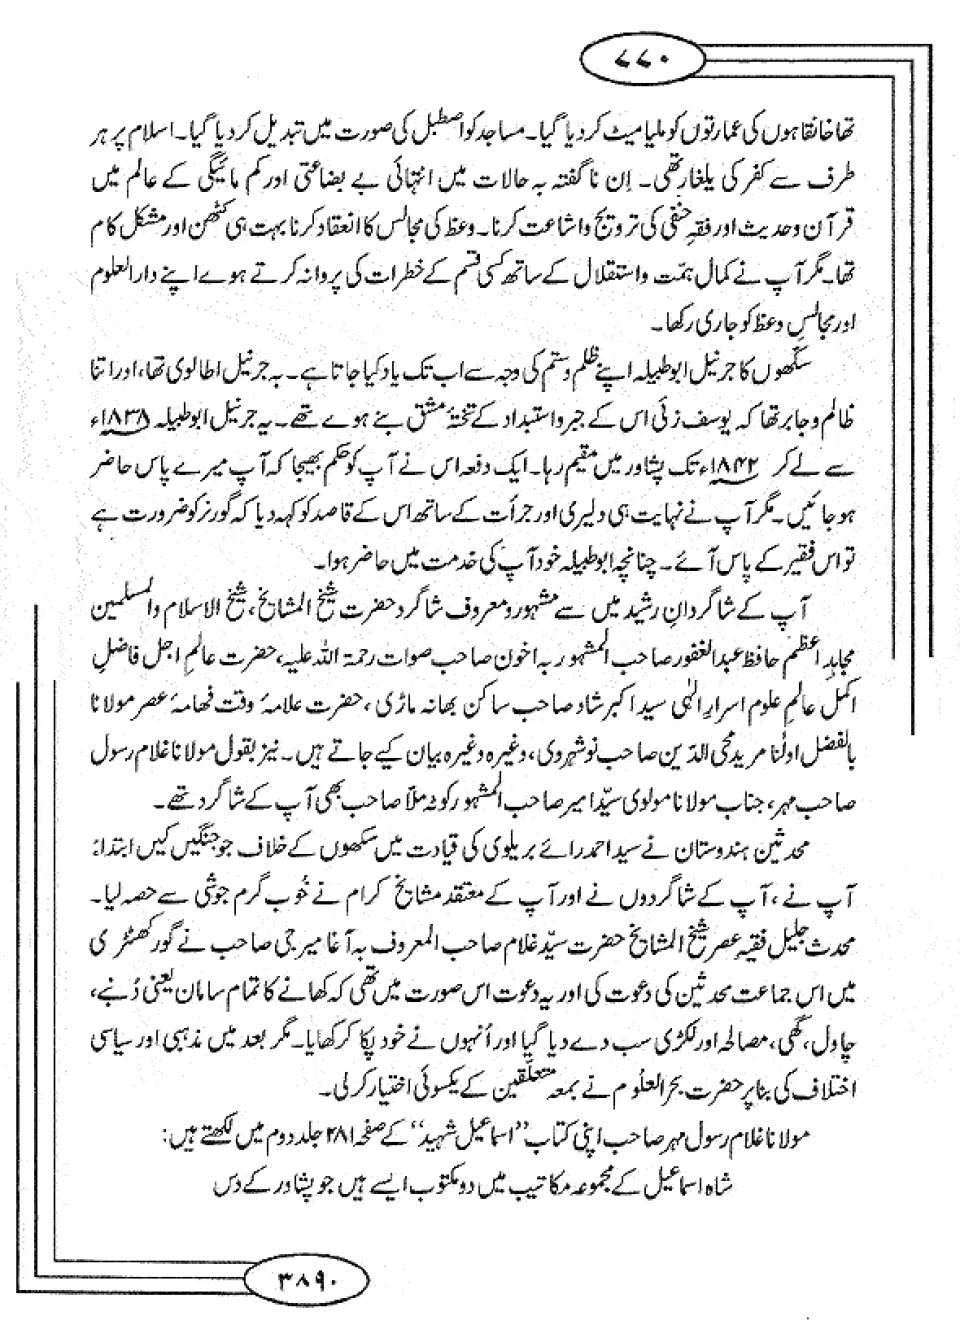 ۷۷۰
تھا خانقاہوں کی عمارتوں کو ملیا میٹ کر دیا گیا۔ مساجد کو اصطبل کی صورت میں تبدیل کر دیا گیا۔ اسلام پر ہر
طرف سے کفر کی یلغار تھی۔ اِن نا گفتہ بہ حالات میں انتہائی بے بضاعتی اور کم مائیگی کے عالم میں
قرآن و حدیث اور فقہِ حنفی کی ترویج و اشاعت کرنا۔ وعظ کی مجالس کا انعقاد کرنا بہت ہی کٹھن اور مشکل کام
تھا۔ مگر آپ نے کمال ہمّت و استقلال کے ساتھ کسی قسم کے خطرات کی پروا نہ کرتے ہوے اپنے دارالعلوم
اور مجالسِ وعظ کو جاری رکھا۔
سکھوں کا جرنیل ابو طبیلہ اپنے ظلم و ستم کی وجہ سے اب تک یاد کیا جاتا ہے۔ یہ جرنیل اطالوی تھا، اور اتنا
ظالم و جابر تھا کہ یوسف زئی اس کے جبر و استبداد کے تختۂ مشق بنے ہوے تھے۔ یہ جرنیل ابو طبیلہ ۱۸۳۸ء
سے لے کر ۱۸۴۲ء تک پشاور میں مقیم رہا۔ ایک دفعہ اس نے آپ کو حکم بھیجا کہ آپ میرے پاس حاضر
ہو جائیں۔ مگر آپ نے نہایت ہی دلیری اور جرأت کے ساتھ اس کے قاصد کو کہہ دیا کہ گورنر کو ضرورت ہے
تو اس فقیر کے پاس آئے۔ چنانچہ ابو طبیلہ خود آپ کی خدمت میں حاضر ہوا۔
آپ کے شاگردانِ رشید میں سے مشہور و معروف شاگرد حضرت شیخ المشایخ، شیخ الاسلام والمسلمین
مجاہدِ اعظم حافظ عبدالغفور صاحب المشہور بہ اخون صاحب صوات رحمۃ اللہ علیہ، حضرت عالمِ اجل فاضلِ
اکمل عالمِ علوم اسرارِ الٰہی سید اکبر شاہ صاحب ساکن بھانہ ماڑی، حضرت علامۂ وقت فہامۂ عصر مولانا
بالفضل اولٰنا مرید محی الدّین صاحب نوشہروی، وغیرہ وغیرہ بیان کیے جاتے ہیں۔ نیز بقول مولانا غلام رسول
صاحب مہر، جناب مولانا مولوی سیّد امیر صاحب المشہور کوٹہ ملّا صاحب بھی آپ کے شاگرد تھے۔
محدثینِ ہندوستان نے سید احمد رائے بریلوی کی قیادت میں سکھوں کے خلاف جو جنگیں کیں ابتداءً
آپ نے، آپ کے شاگردوں نے اور آپ کے معتقد مشایخِ کرام نے خُوب گرم جوشی سے حصہ لیا۔
محدث جلیل فقیہ عصر شیخ المشایخ حضرت سیّد غلام صاحب المعروف بہ آغا میر جی صاحب نے گور کھٹڑی
میں اس جماعت محدثین کی دعوت کی اور یہ دعوت اس صورت میں تھی کہ کھانے کا تمام سامان یعنی دُنبے،
چاول، گھی، مصالحہ اور لکڑی سب دے دیا گیا اور اُنہوں نے خود پکا کر کھایا۔ مگر بعد میں مذہبی اور سیاسی
اختلاف کی بنا پر حضرت بحر العلُوم نے بمعہ متعلّقین کے یکسوئی اختیار کر لی۔
مولانا غلام رسول مہر صاحب اپنی کتاب ”اسماعیل شہید“ کے صفحہ ۲۸۱ جلد دوم میں لکھتے ہیں:
شاہ اسماعیل کے مجموعہ مکاتیب میں دو مکتوب ایسے ہیں جو پشاور کے دس
۳۸۹۰